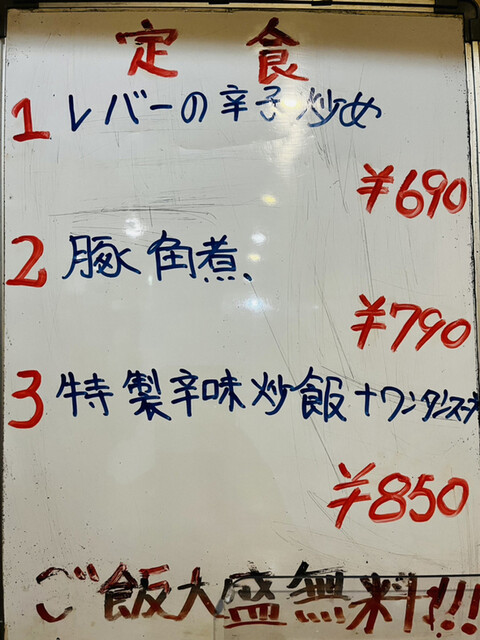 定食
1 レバーの辛子炒め
¥690
2 豚角煮
¥790
3 特製辛味炒飯+ワンタンスープ
¥850
ご飯大盛無料!!!